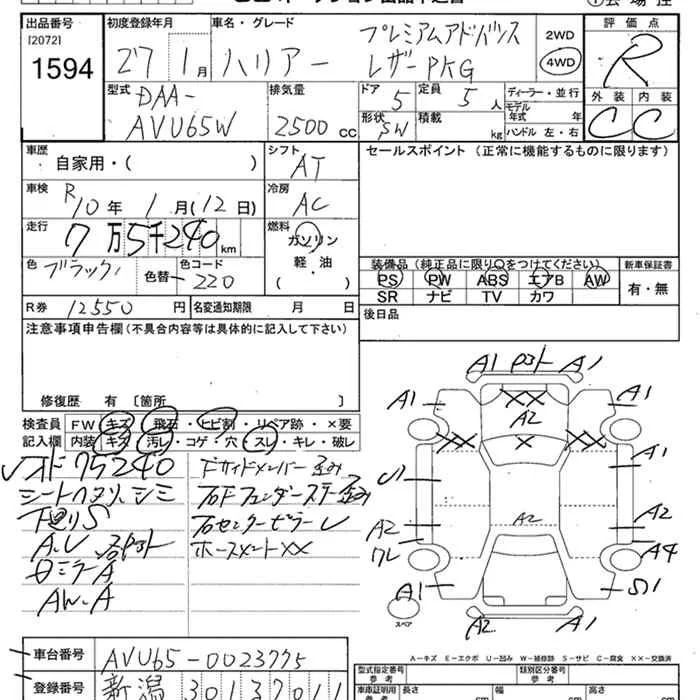 出品番号 初度登録年月 車名・グレード 評価点
[2072]
1594
27 1月 ハリアー プレミアムアドバンス
レザーPKG
2WD
4WD
R
外装 内装
C C
型式 DAA-
AVU65W
排気量 2500 cc
ドア 5 定員 5 人
形状 SW 積載 kg
ディーラー・並行
モデル年式 年
ハンドル 左・右
車歴 自家用・( )
シフト AT
セールスポイント(正常に機能するものに限ります)
車検 R10年 1月(12日)
冷房 AC
走行 7万5千240km
燃料 ガソリン
軽・油
( )
色 ブラック 色替 色コード 220
装備品(純正品に限り○をつけてください) 新車保証書
PS PW ABS エアB AW 有・無
SR ナビ TV カワ
R券 12550円 名変通知期限 月 日
後日品
注意事項申告欄(不具合内容等は具体的に記入して下さい)
修復歴 有 [箇所 ]
検査員 FW キズ・飛石・ヒビ割・リペア跡・×要
記入欄 内装 キズ・汚レ・コゲ・穴・スレ・キレ・破レ
75240
シートヘタリ、シミ
下廻りS
AW.A
Fサイドメンバー歪み
右Fフェンダーステー歪み
右センターピラーU
ホースメントXX
A1 A1
A1 A1
XX
A2
XX X XX
U1 A1
A2 A2 A2
A4
A1 S1
スペア
A2 A1
A-キズ E-エクボ U-凹み W-補修跡 S-サビ C-腐食 XX-交換済
車台番号 AVU65-0023775
型式指定番号 参考 類別区分番号 参考
登録番号 新潟 301 37011
車庫証明用 参考 長さ cm 幅 cm 高さ cm